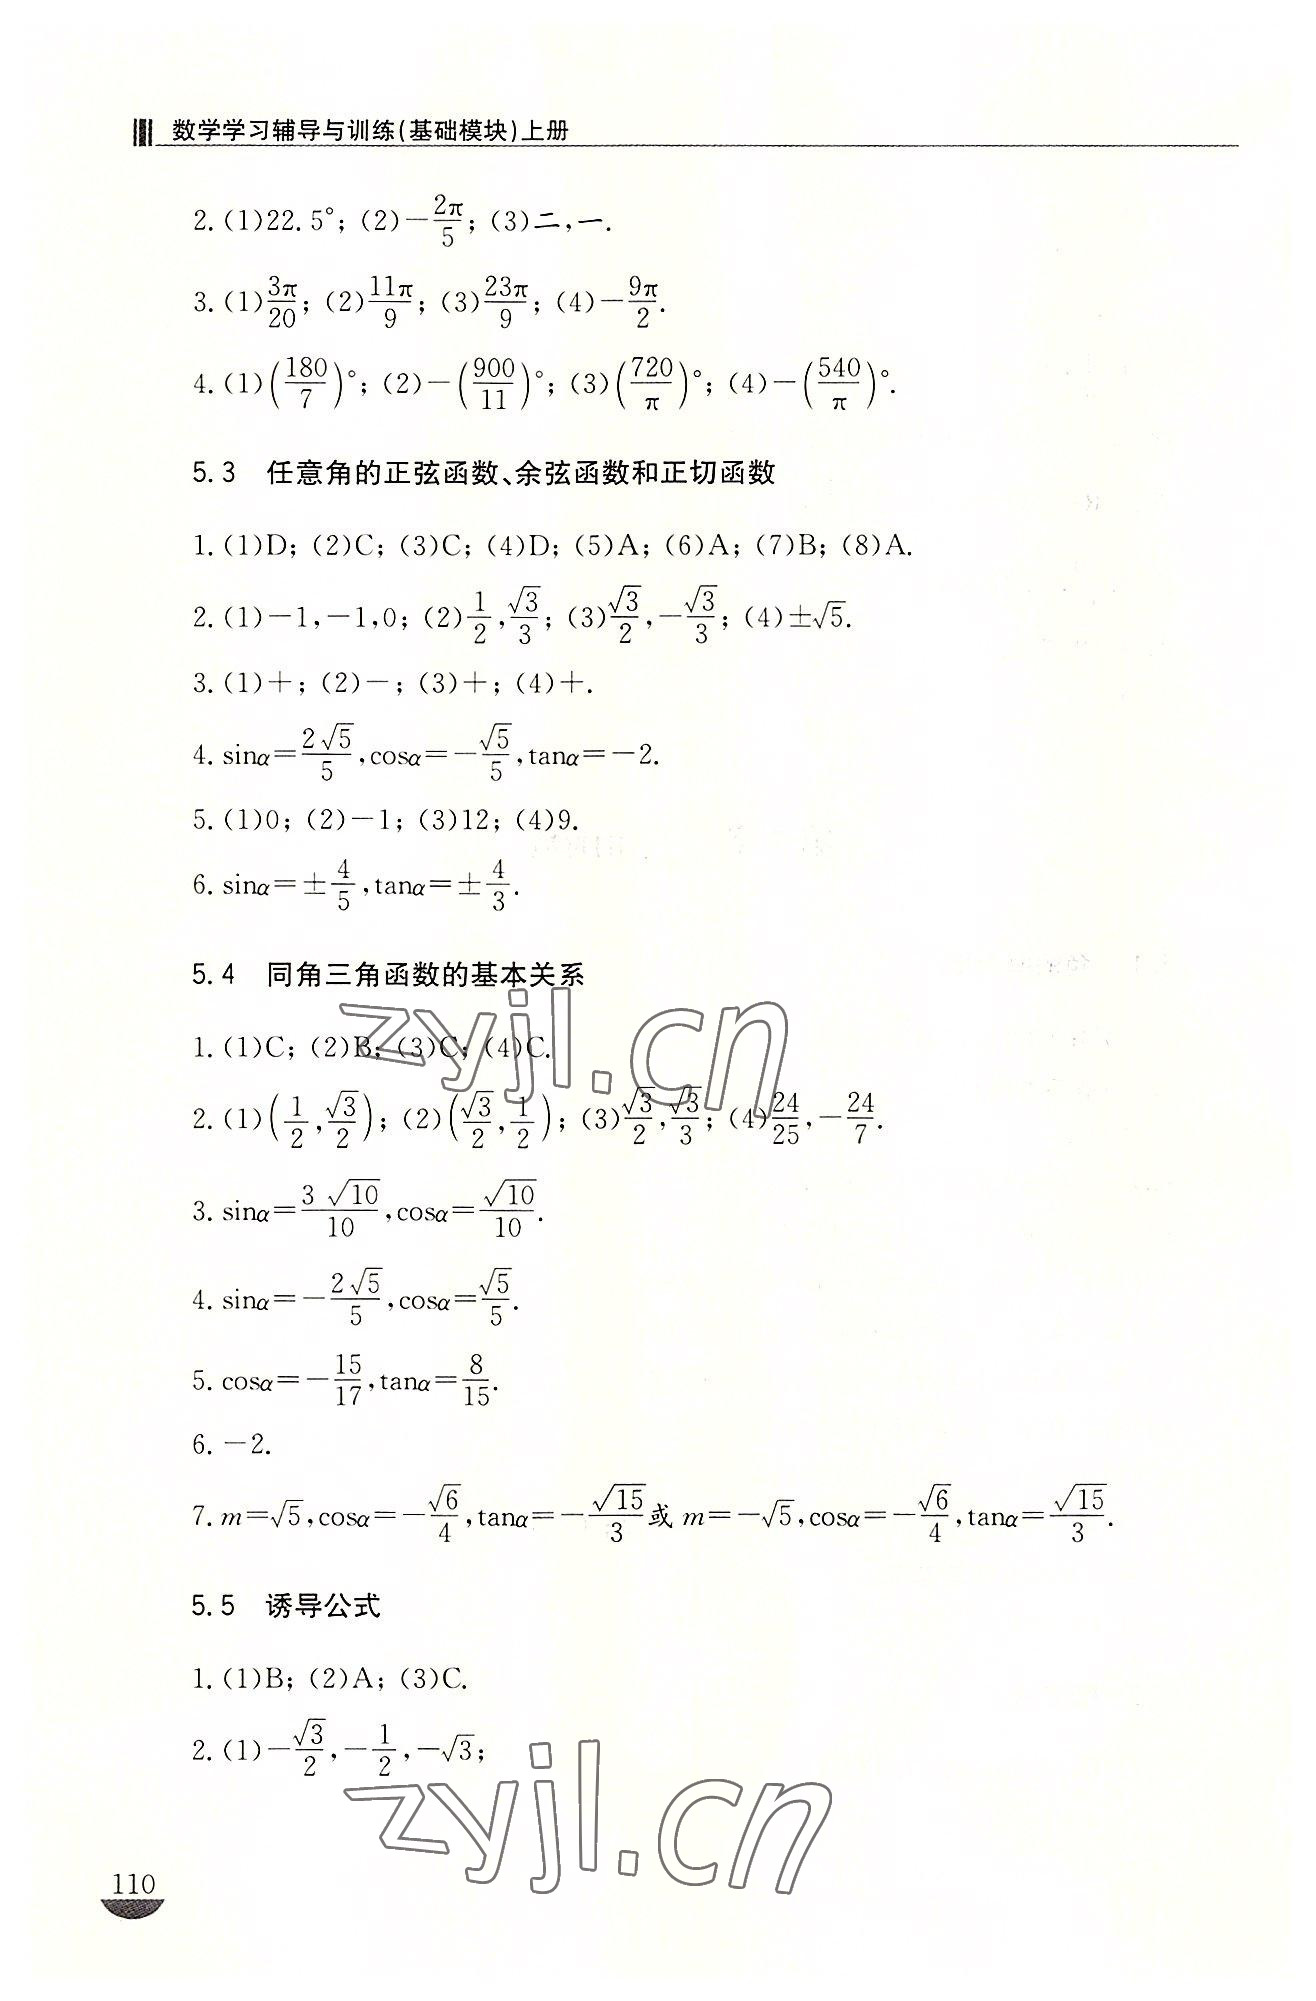 数学学习辅导与训练(基础模块)上册
2. (1)22.5°; (2)-2π/5; (3)二,一.
3. (1)3π/20; (2)11π/9; (3)23π/9; (4)-9π/2.
4. (1)(180/7)°; (2)-(900/11)°; (3)(720/π)°; (4)-(540/π)°.
5.3 任意角的正弦函数、余弦函数和正切函数
1. (1)D; (2)C; (3)C; (4)D; (5)A; (6)A; (7)B; (8)A.
2. (1)-1,-1,0; (2)1/2,√3/3; (3)√3/2,-√3/3; (4)±√5.
3. (1)+; (2)-; (3)+; (4)+.
4. sinα=2√5/5,cosα=-√5/5,tanα=-2.
5. (1)0; (2)-1; (3)12; (4)9.
6. sinα=±4/5,tanα=±4/3.
5.4 同角三角函数的基本关系
1. (1)C; (2)B; (3)C; (4)C.
2. (1)(1/2,√3/2); (2)(√3/2,1/2); (3)√3/2,√3/3; (4)24/25,-24/7.
3. sinα=3√10/10,cosα=√10/10.
4. sinα=-2√5/5,cosα=√5/5.
5. cosα=-15/17,tanα=8/15.
6. -2.
7. m=√5,cosα=-√6/4,tanα=-√15/3或 m=-√5,cosα=-√6/4,tanα=√15/3.
5.5 诱导公式
1. (1)B; (2)A; (3)C.
2. (1)-√3/2,-1/2,-√3;
110
zyjl.cn
zyjl.cn